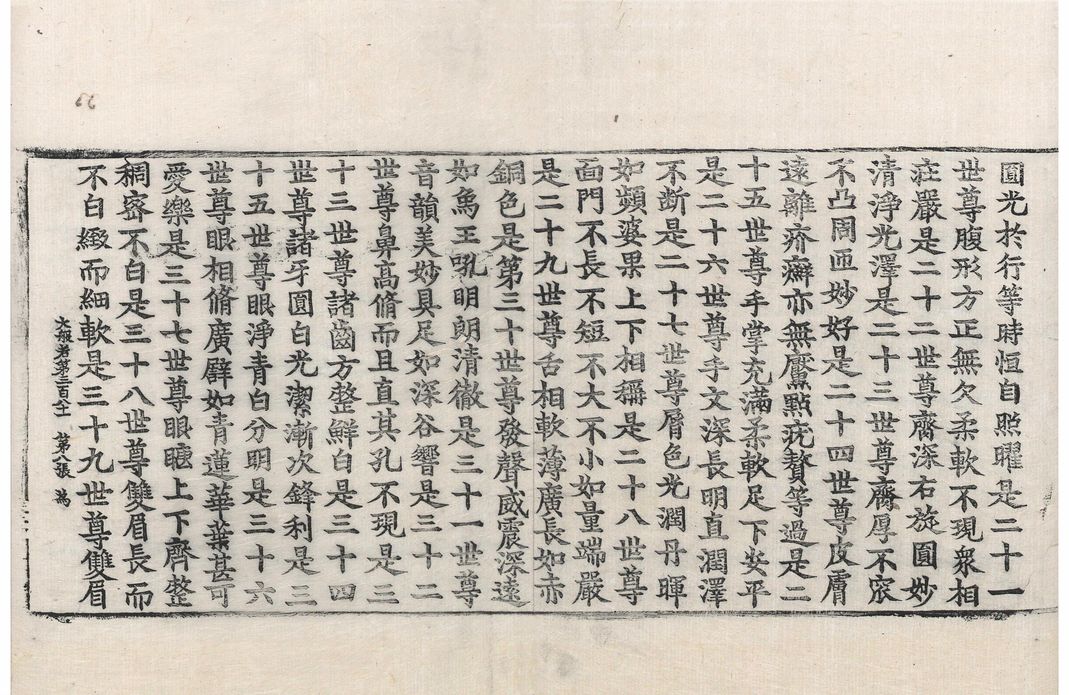 圓光於行等時恒自照曜是二十一
世尊腹形方正無欠柔軟不現衆相
莊嚴是二十二世尊齎深右旋圓妙
清淨光澤是二十三世尊齎厚不窊
不凸周匝妙好是二十四世尊皮膚
遠離疥癬亦無黶點疣贅等過是二
十五世尊手掌充滿柔軟足下安平
是二十六世尊手文深長明直潤澤
不断是二十七世尊脣色光潤丹暉
如頻婆果上下相稱是二十八世尊
面門不長不短不大不小如量端嚴
是二十九世尊舌相軟薄廣長如赤
銅色是第三十世尊發聲威震深遠
如象王吼明朗清徹是三十一世尊
音韻美妙具足如深谷響是三十二
世尊鼻高脩而且直其孔不現是三
十三世尊諸齒方整鮮白是三十四
世尊諸牙圓白光潔漸次鋒利是三
十五世尊眼淨青白分明是三十六
世尊眼相脩廣譬如青蓮華葉甚可
愛樂是三十七世尊眼睫上下齊整
稠密不白是三十八世尊雙眉長而
不白緻而細軟是三十九世尊雙眉
大般若第三百八十一 第八張 爲